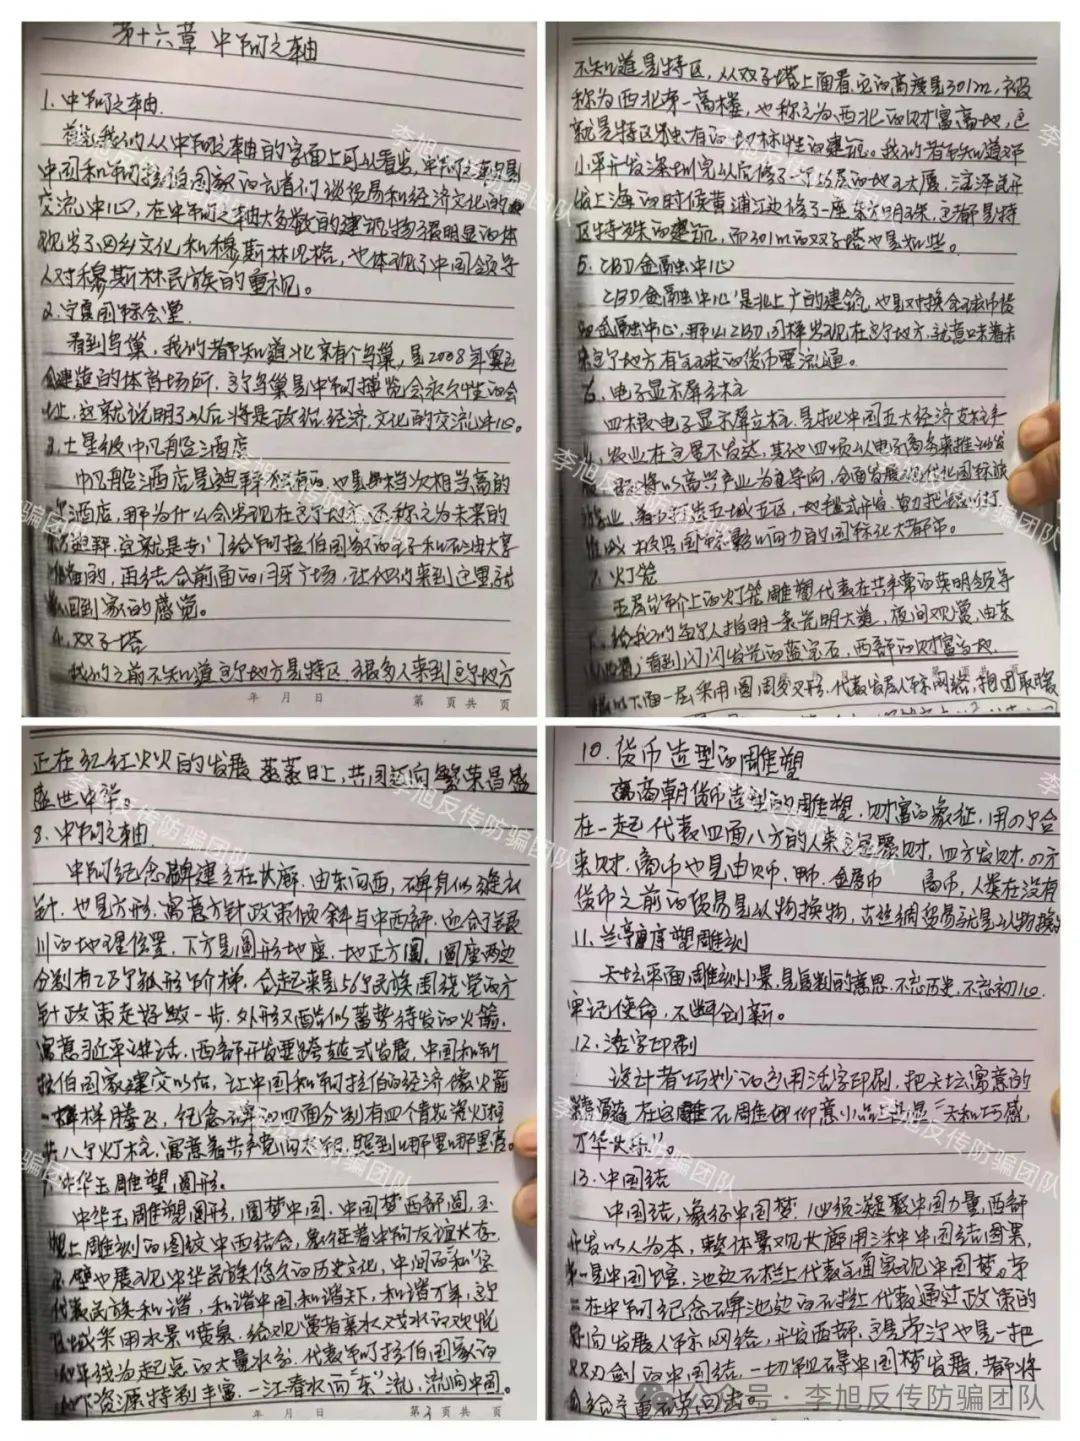 第十六章 中阿之轴
1. 中阿之轴.
首先我们从中阿之轴的字面上可以看出,中阿之轴是
中国和阿拉伯国家的元首们谈贸易和经济文化的
交流中心,在中阿之轴大多数的建筑物很明显的体
现出了回乡文化和穆斯林风格,也体现了中国领导
人对穆斯林民族的重视。
2. 宁夏国际会堂
看到鸟巢,我们都知道北京有个鸟巢,是2008年奥运
会建造的体育场所,这个鸟巢是中阿博览会永久性的会
址,这就说明了以后将是政治.经济,文化的交流中心。
3. 七星级中凡般酒店
帆般酒店是迪拜独有的,也是档次相当高的
酒店,那为什么会出现在这个地方,还称之为未来的
迪拜,这就是专门给阿拉伯国家的王子和石油大亨
的,再结合前面的月牙广场,让他们来到这里就
回到家的感觉。
4. 双子塔
我们之前不知道这个地方是特区,很多人来到这个地方
年 月 日 第 页 共 页
不知道是特区,从双子塔上面看,它的高度是301m,被
称为西北第一高楼,也称之为西北的财富高地,它
就是特区独有的地标性的建筑。我们都知道邓
小平开发深圳完以后修了一个68层的地王大厦,江泽民开
发上海的时候黄浦江边修了一座东方明珠,这都是特
区特殊的建筑,而301m的双子塔也是如些。
5. CBD金融中心
CBD金融中心是北上广的建筑,也是对换全球币货
的金融中心,那么CBD同样出现在这个地方,就意味着未
来这个地方有全球的货币要流通。
6. 电子显示屏立柱
四根电子显示屏立柱,是指中国五大经济支柱手
,农业在这里不发达,其他四项以电子商务来推动发
展,将以高兴产业为主导向,全面发展现代化国际旅
业,着力打造五城五区,地毯式开发,努力把银川打
成极具国际影响力的国际化大都市。
7. 灯笼
五层台阶上的灯笼雕塑代表在共产党的英明领导
下,给我们每个人指明一条光明大道,夜间观赏,由东
看到闪闪发光的蓝宝石,西部的财富高地.
以下面一层采用圆周交叉形,代表发展人际网络,抱团取暖
正在红红火火的发展 蒸蒸日上,共同迈向繁荣昌盛
盛世中华。
8. 中阿之轴.
中阿纪念碑建立在长廊.由东向西,碑身似锥衣
针.也是方形.寓意方针政策倾斜与中西部.迎合了银
川的地理位置,下方是圆形地座.地正方圆.圆座两边
分别有28个弧形阶梯,合起来是56个民族围绕党的方
针政策走好每一步.外形又酷似蓄势待发的火箭,
寓意习近平讲话,西部开发要跨越式发展,中国和阿
拉伯国家建交以后,让中国和阿拉伯的经济像火箭
一样样腾飞,纪念碑的四面分别有四个青花瓷火炬
共八个灯柱,寓意着共产党的光明.照到哪里哪里亮。
中华玉雕塑圆形。
中华玉雕塑圆形,圆梦中国.中国梦西部圆,玉
璧上雕刻的图纹中西结合,象征着中阿友谊长存.
玉璧也展现中华民族悠久的历史文化,中间的"和"字
代表民族和谐,和谐中国,和谐天下,和谐万年,这个
区域采用水景喷泉.给观赏者亲水戏水的欢悦
以年钱为起点的大量水分.代表阿拉伯国家的
下资源特别丰富.一江春水向"东"流,流向中国。
年 月 日 第3页 共 页
10. 货币造型的雕塑
商朝货币造型的雕塑,财富的象征.用四个合
在一起代表四面八方的人来宁夏聚财,四方发财.四方
来财.商币也是由贝币、甲币.金属币 商币,人类在没有
货币之前的贸易是以物换物,古丝绸贸易就是以物换物
11. 兰亭序塑雕刻
天坛平面雕刻小景,是复制的意思.不忘历史,不忘初心.
牢记使命,不断创新。
12. 活字印刷
设计者巧妙的运用活字印刷,把天坛寓意的
在这雕石雕仰意小品上显"天和巧感,
万华快乐"。
13. 中国结
中国结,象征中国梦.必须凝聚中国力量,西部
开发以人为本,整体景观长廊用三种中国结图案,
第一是中国馆.池边石栏上代表全面实现中国梦。第
二在中阿纪念碑池边的石栏上代表通过政策的
导向发展人际网络,开发西部.三是第次也是一把
双刃剑的中国结.一切阻碍中国梦发展,都将
会给予重石劳回击。
公众号·李旭反传防骗团队
李旭反传防骗团队